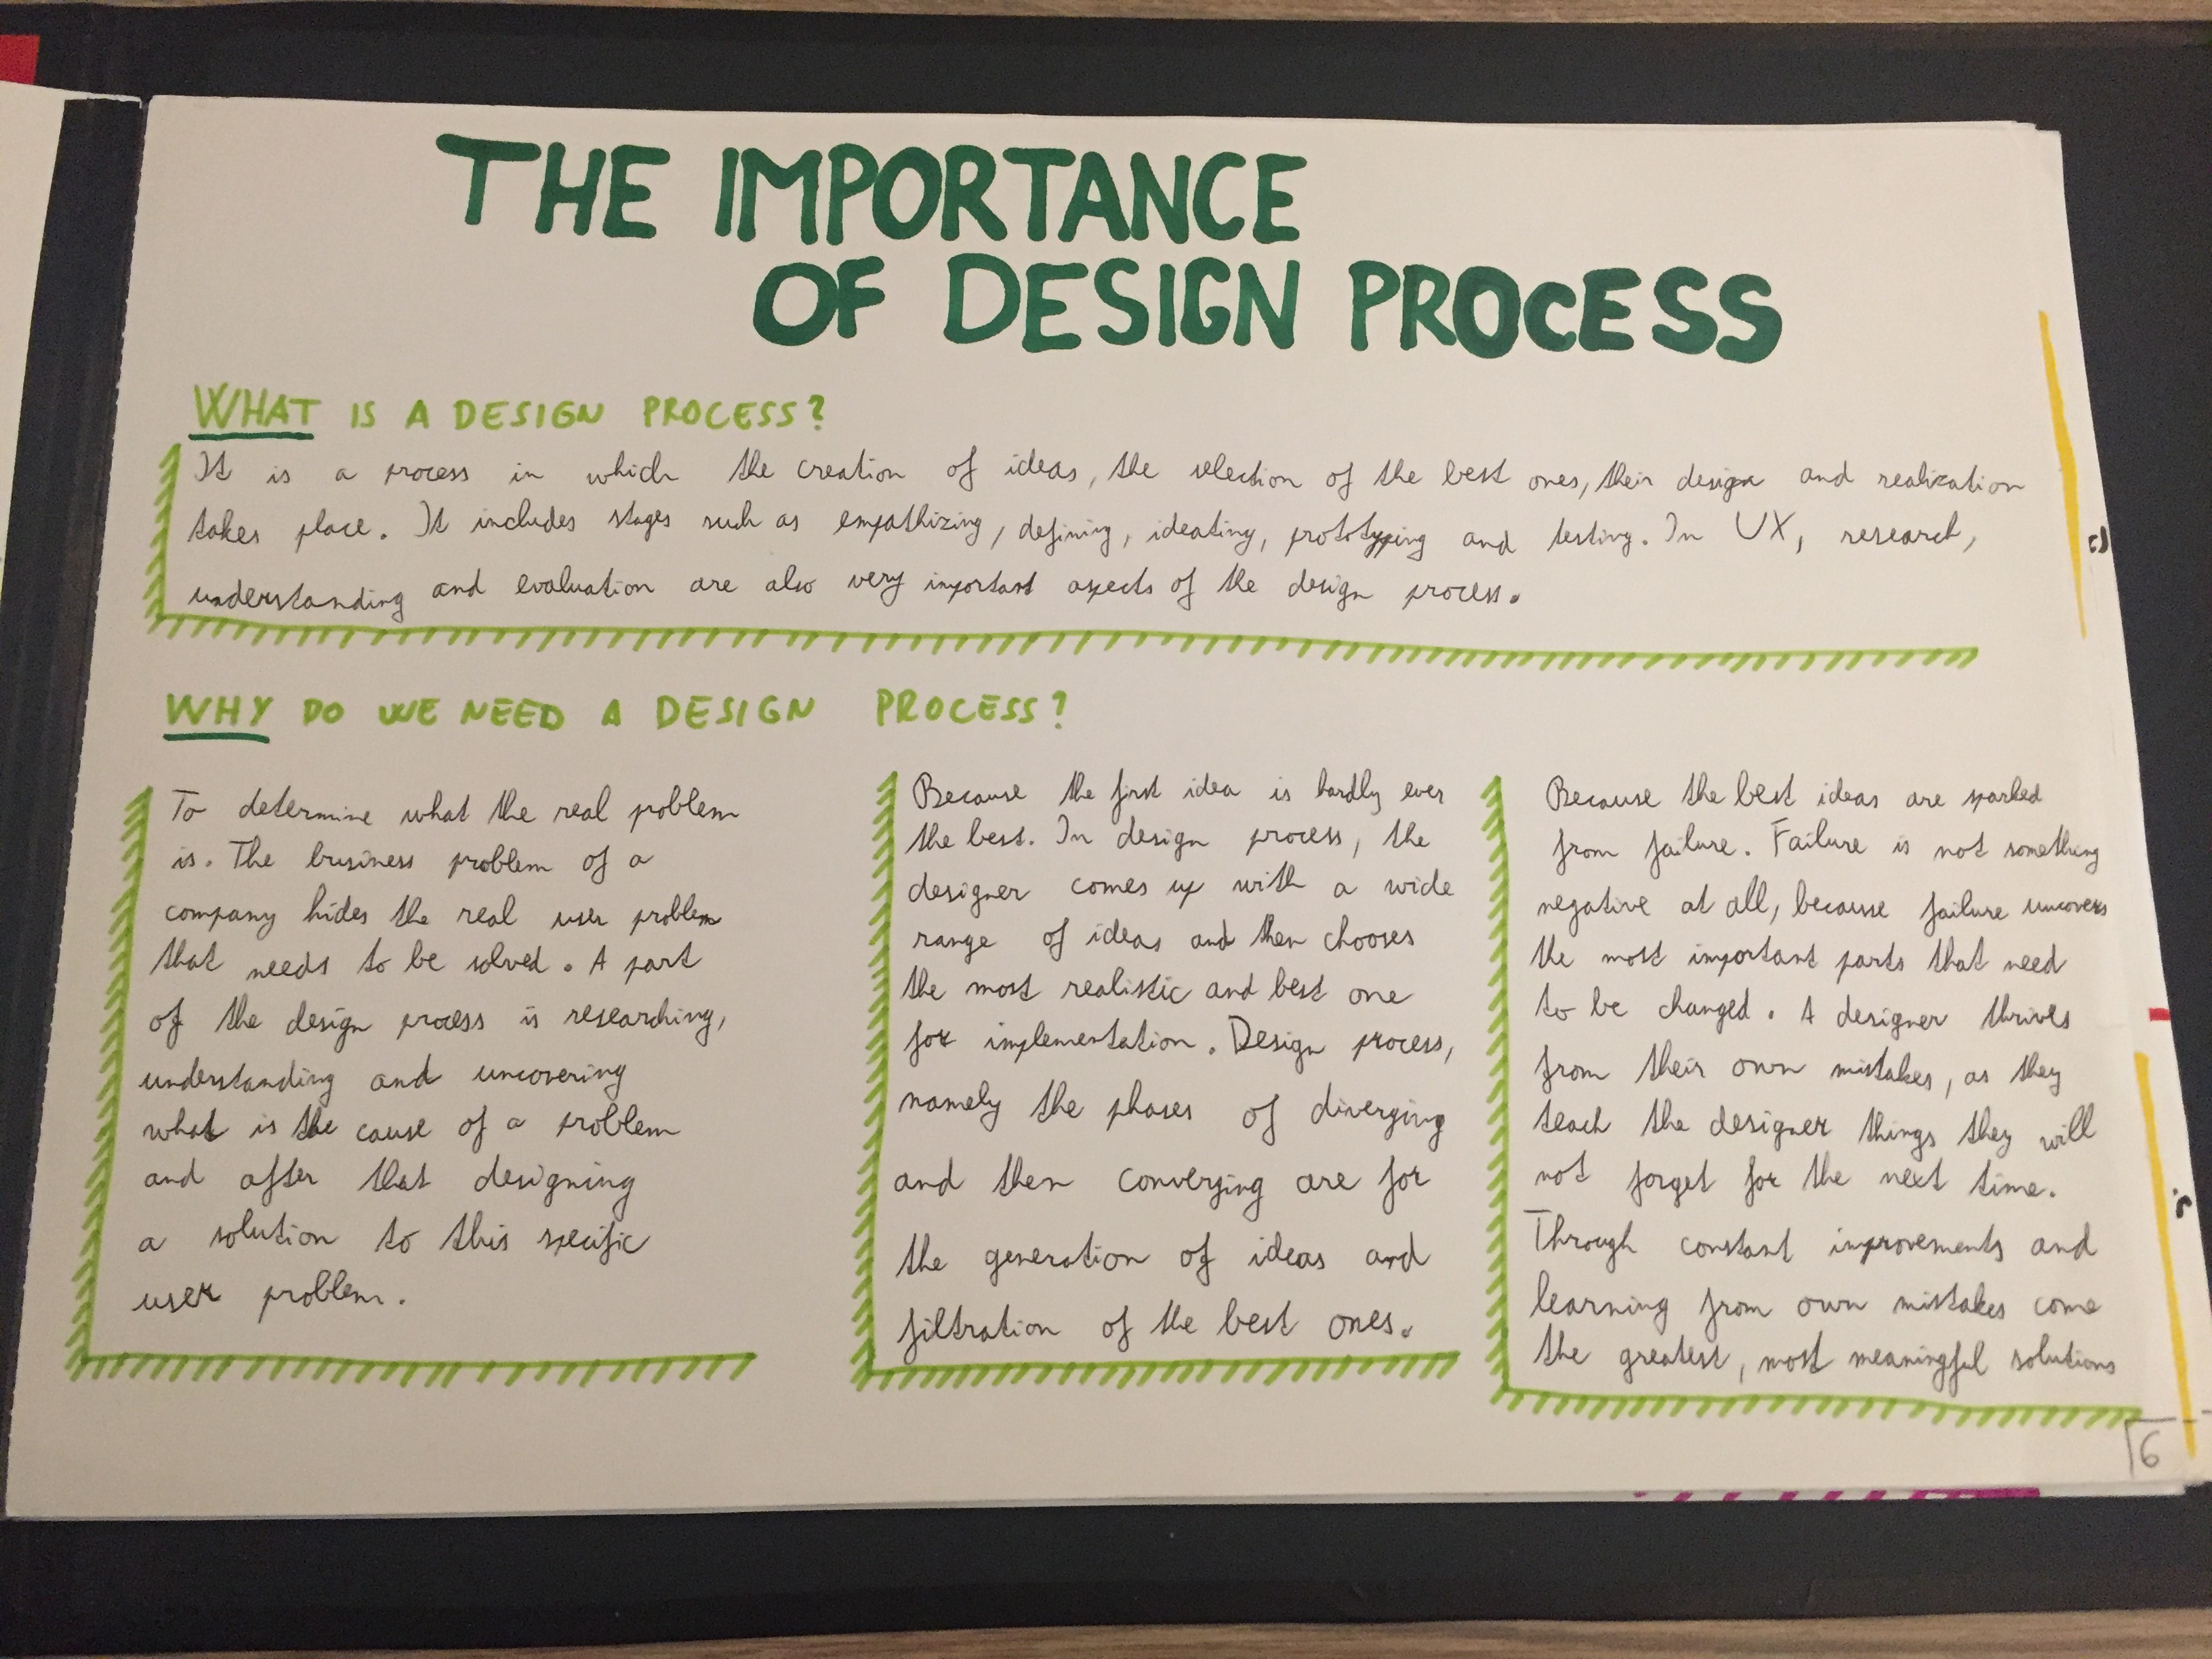 THE IMPORTANCE
OF DESIGN PROCESS
WHAT IS A DESIGN PROCESS?
It is a process in which the creation of ideas, the selection of the best ones, their design and realization
takes place. It includes stages such as empathizing, defining, ideating, prototyping and testing. In UX, research,
understanding and evaluation are also very important aspects of the design process.
WHY DO WE NEED A DESIGN PROCESS?
To determine what the real problem
is. The business problem of a
company hides the real user problem
that needs to be solved. A part
of the design process is researching,
understanding and uncovering
what is the cause of a problem
and after that designing
a solution to this specific
user problem.
Because the first idea is hardly ever
the best. In design process, the
designer comes up with a wide
range of ideas and then chooses
the most realistic and best one
for implementation. Design process,
namely the phases of diverging
and then converging are for
the generation of ideas and
filtration of the best ones.
Because the best ideas are sparked
from failure. Failure is not something
negative at all, because failure uncovers
the most important parts that need
to be changed. A designer thrives
from their own mistakes, as they
teach the designer things they will
not forget for the next time.
Through constant improvements and
learning from own mistakes come
the greatest, most meaningful solutions
6